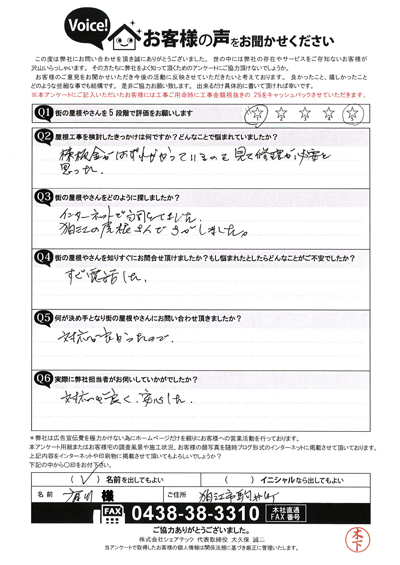 Voice!
お客様の声をお聞かせください
この度は弊社にお問い合わせを頂き誠にありがとうございました。世の中には弊社の存在やサービスをご存知ないお客様が
沢山いらっしゃいます。その方たちに弊社をよく知って頂くためのアンケートにご協力頂けないでしょうか。
お客様のご意見をお聞かせいただき今後の活動に反映させていただきたいと考えております。良かったこと、嬉しかったこと
どのような些細な事でも結構です。是非ご協力お願い致します。出来るだけ具体的に書いて頂ければ幸いです。
※本アンケートにご記入いただいたお客様には工事ご用命時に工事金額税抜きの2%をキャッシュバックさせていただきます。
Q1 街の屋根やさんを5段階で評価をお願いします
Q2 屋根工事を検討したきっかけは何ですか?どんなことで悩まれていましたか?
棟板金がはずれかかっているので見て修理が必要と
思った。
Q3 街の屋根やさんをどのように探しましたか?
インターネットで
狛江の屋根さんでさがしました。
Q4 街の屋根やさんを知りすぐにお問合せ頂けましたか?もし悩まれたとしたらどんなことがご不安でしたか?
すぐ電話した。
Q5 何が決め手となり街の屋根やさんにお問い合わせ頂きましたか?
対応が良かったので。
Q6 実際に弊社担当者がお伺いしていかがでしたか?
対応が良く、安心した。
※弊社は広告宣伝費を極力かけない為にホームページだけを頼りにお客様への営業活動を行っております。
本アンケート用紙またはお客様宅の調査風景や施工状況、お客様の顔写真を随時ブログ形式のインターネットに掲載させて頂いております。
上記内容をインターネットや印刷物に掲載させて頂いてもよろしいでしょうか?
下記の中から○印をお付け下さい。
( ✓ )名前を出してもよい ( )イニシャルなら出してもよい
名前 様 ご住所 狛江市
FAX 0438-38-3310 本社直通 FAX番号
ご協力ありがとうございました。
株式会社シェアテック 代表取締役 大久保 誠二
当アンケートで取得したお客様の個人情報は関係法規に基づき厳正に管理いたします。
木下